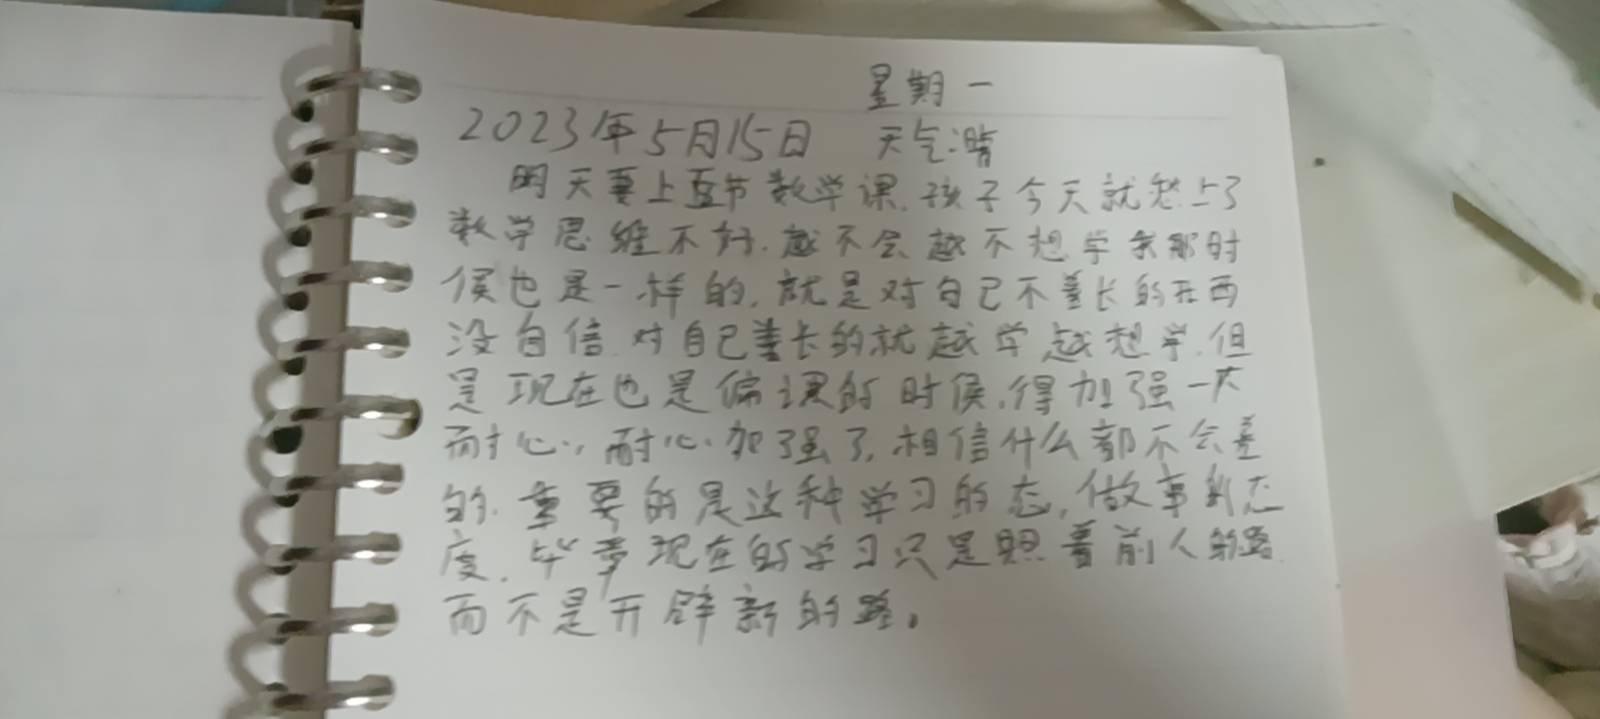 星期一
2023年5月15日 天气:晴
明天要上五节数学课.孩子今天就愁上了
数学思维不好.越不会越不想学我那时
候也是一样的,就是对自己不善长的东西
没自信.对自己善长的就越学越想学.但
是现在也是偏课的时候,得加强一下
耐心,耐心加强了,相信什么都不会差
的.重要的是这种学习的态,做事的态
度.毕竟现在的学习只是照着前人的路
而不是开辟新的路。